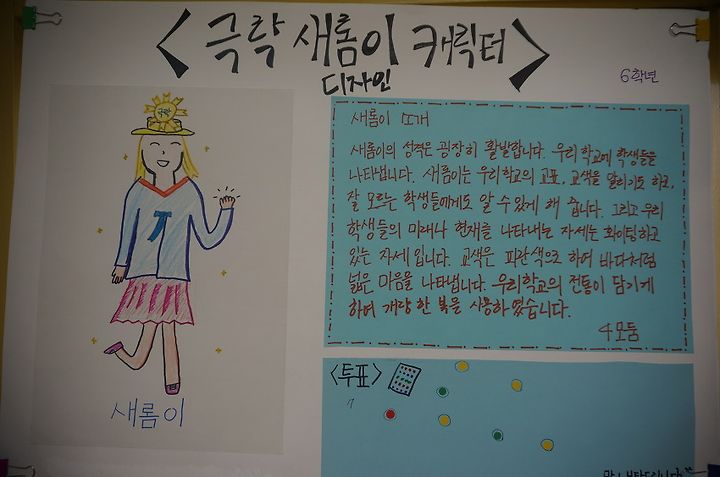 <극락 새롬이 캐릭터>
디자인
6학년
극락
새롬이 뜨개
새롬이의 성격은 굉장히 활발합니다. 우리 학교에 학생들을
나타냅니다. 새롬이는 우리 학교의 교표, 교색을 알리기도 하고,
잘 모르는 학생들에게도 알 수 있게 해 줍니다. 그리고 우리
학생들의 미래나 현재를 나타내는 자세는 화이팅하고
있는 자세 입니다. 교색은 파란색으로 하여 바다처럼
넓은 마음을 나타냅니다. 우리학교의 전통이 담기게
하여 개량 한 복을 사용하였습니다.
4모둠
새롬이
<투표>